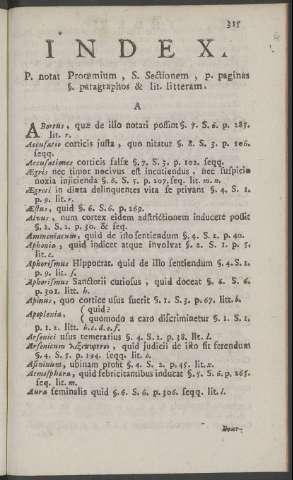 315
INDEX.
P. notat Proœmium, S. Sectionem, p. paginas
§. paragraphos & lit. litteram.
A
ABortus, quæ de illo notari possint §. 7. S. 6. p. 287.
lit. r.
Accusatio corticis justa, quo nitatur §. 8. S. 3. p. 106.
seqq.
Accusationes corticis falsæ §. 7. S. 3. p. 102. seqq.
Ægris nec timor nocivus est incutiendus, nec suspicio
noxia injicienda §. 6. S. 5. p. 207. seq. lit. m. n.
Ægroti in diæta delinquentes vita se privant §. 4. S. 1.
p. 9. lit. r.
Æstas, quid §. 6. S. 6. p. 269.
Alvus, num cortex eidem adstrictionem inducere possit
§. 2. S. 2. p. 30. & seq.
Ammoniacum, quid de isto sentiendum §. 4. S. 2. p. 40.
Aphonia, quid indicet atque involvat §. 2. S. 1. p. 5.
lit. c.
Aphorismus Hippocrat. quid de illo sentiendum §. 4. S. 1.
p. 9. lit. s.
Aphorismus Sanctorii curiosus, quid doceat §. 6. S. 6.
p. 301. litt. h.
Apinus, quo cortice usus fuerit §. 1. S. 3. p. 67. litt. b.
( quid?
Apoplexia,
( quomodo a caro discriminetur §. 1. S. 1.
p. 1. 2. litt. b. c. d. e. f.
Arsenici usus temerarius §. 4. S. 2. p. 38. lit. l.
Arsenicum, quid judicii de isto sit ferendum
§. 4. S. 5. p. 194. seqq. lit. o.
Asininum, ubinam prosit §. 4. S. 2. p. 45. lit. x.
Atmosphæra, quid febricitantibus inducat §. 5. S. 6. p. 265.
seq. lit. m.
Aura seminalis quid §. 6. S. 6. p. 306. seqq. lit. l.